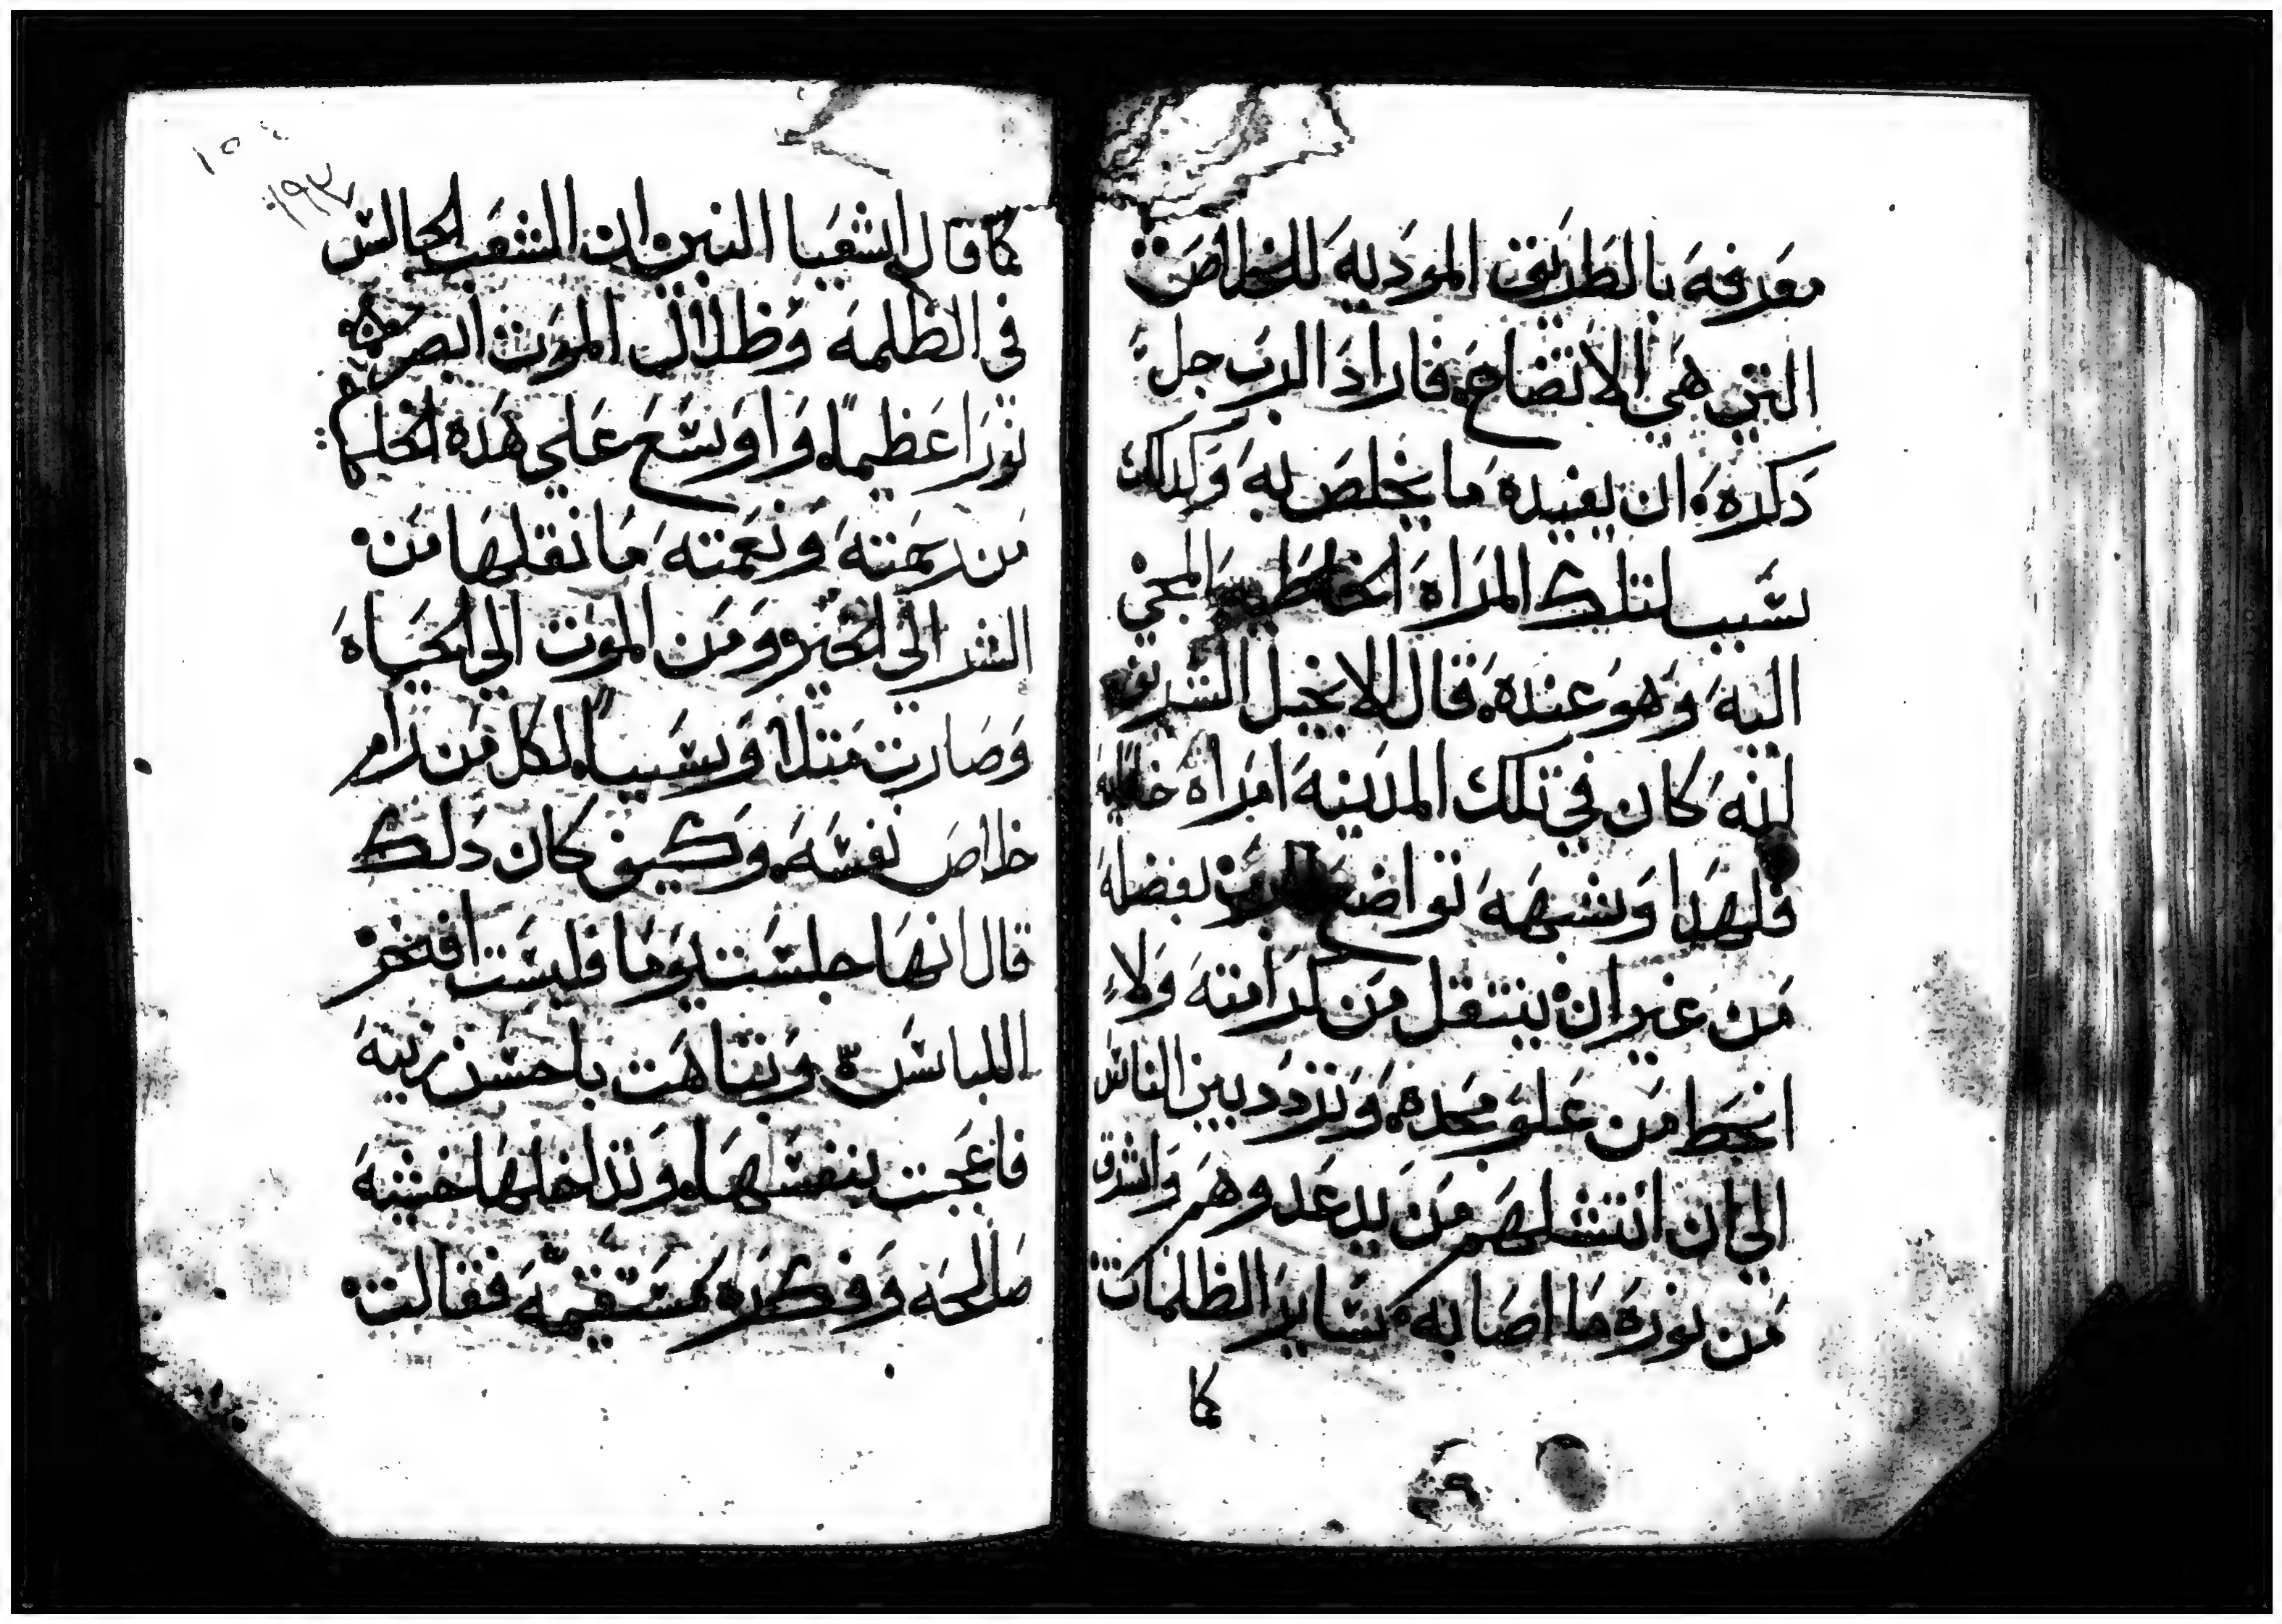 معرفه بالطريق الموديه للخلاص
التي هي الاتضاع. فاراد الرب جل
دكره. ان يفيده ما يخلص به وكدلك
سبب لتلك المراه الخاطيه المجي
اليه وهو عنده. قال الانجيل الشريف
انه كان في تلك المدينه امراه خاطيه
فلهدا وشبهه تواضع الرب بفضله
من غير ان ينتقل من كرامته ولا
انحط من علو مجده. وتردد بين الناس
الي ان انتشلهم من يد عدوهم واشرق
من نوره ما اضا به ساير الظلمات
كما
١٩٣
كما قال اشعيا النبي ان الشعب الجالس
في الظلمه وظلال الموت ابصر
نورا عظيما. واوسع علي هده
من رحمته ونعمته ما نقلها من
الشر الي الخير ومن الموت الي الحياه
وصارت متلا وسببا. لكل من رام
خلاص نفسه. وكيف كان دلك
قال انها جلست يوما فلبست افخر
اللباس وتباهت باحسن زينه
فاعجبت بنفسها. وتداخلها خشيه
صالحه وفكره مستقيمه فقالت